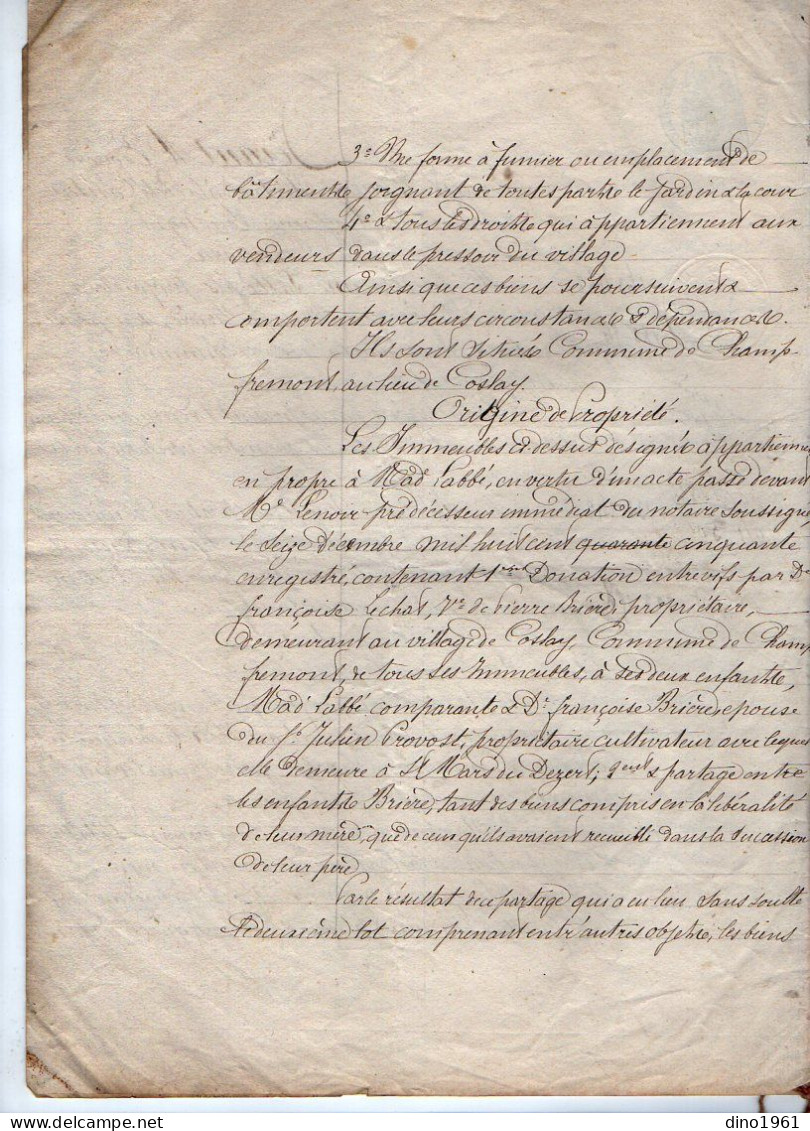 3º Une forme à fumier ou emplacement de
bâtiments joignant de toutes parts le jardin & la cour
4º & tous les droits qui appartiennent aux
vendeurs dans le pressoir du village
Ainsi que ces biens se poursuivent &
comportent avec leurs circonstances & dépendances.
Ils sont situés Commune de Champ-
fremont, au lieu de Coslay.
Origine de Propriété.
Les Immeubles ci dessus désignés appartiennent
en propre à Mad. Labbé, en vertu d'un acte passé devant
Me Lenoir prédécesseur immédiat du notaire soussigné
le seize Décembre mil huit cent quarante cinquante
enregistré, contenant 1ent Donation entrevifs par De
françoise Lechat, Ve de Pierre Brière, propriétaire,
demeurant au village de Coslay, Commune de Champ
fremont, de tous ses Immeubles, à ses deux enfants,
Mad. Labbé comparante & De françoise Brière, épouse
du Sr Julien Provost, propriétaire cultivateur avec lequel
elle demeure à St Mars du Dezert; 2ent & partage entre
les enfants Brière, tant des biens compris en la libéralité
de leur mère, que de ceux qu'ils avaient recueillis dans la succession
de leur père.
Par le résultat de ce partage qui a eu lieu sans soulte
le deuxième lot comprenant entr'autres objets, les biens
dino1961